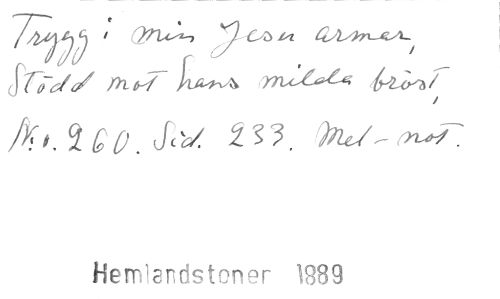 Trygg i min Jesu armar,
Stödd mot hans milda bröst,
No. 260. Sid. 233. Mel-not.
Hemlandstoner 1889